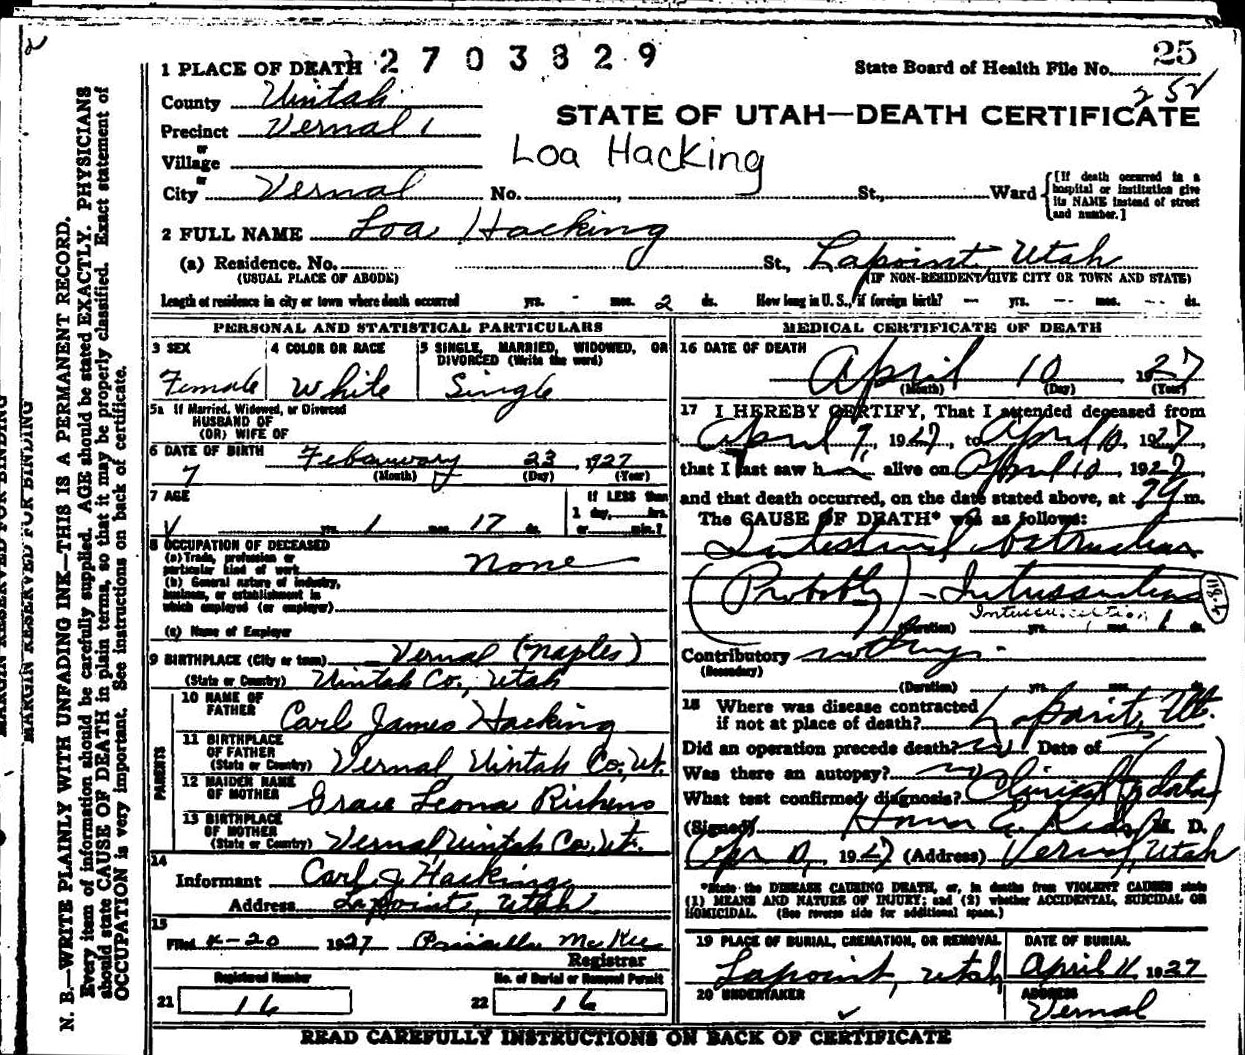 2703829
25
State Board of Health File No.
252
1 PLACE OF DEATH
County Uintah
STATE OF UTAH—DEATH CERTIFICATE
Precinct Vernal 1
or
Village
Loa Hacking
or
City Vernal No. , St., Ward
[If death occurred in a hospital or institution give its NAME instead of street and number.]
2 FULL NAME Loa Hacking
(a) Residence. No. St., Lapoint, Utah
(USUAL PLACE OF ABODE) (IF NON-RESIDENT GIVE CITY OR TOWN AND STATE)
Length of residence in city or town where death occurred yrs. - mos. 2 ds. How long in U. S., if foreign birth? — yrs. — mos. — ds.
PERSONAL AND STATISTICAL PARTICULARS
3 SEX
Female
4 COLOR OR RACE
White
5 SINGLE, MARRIED, WIDOWED, OR
DIVORCED (Write the word)
Single
5a If Married, Widowed, or Divorced
HUSBAND OF
(OR) WIFE OF
6 DATE OF BIRTH Febauwary 23, 1927
7 (Month) (Day) (Year)
7 AGE
yrs. 1 mos. 17 ds.
If LESS than
1 day, hrs.
or min.?
8 OCCUPATION OF DECEASED
(a) Trade, profession or
particular kind of work None
(b) General nature of industry,
business, or establishment in
which employed (or employer)
(c) Name of Employer
9 BIRTHPLACE (City or town) Vernal (Naples)
(State or Country) Uintah Co., Utah
PARENTS
10 NAME OF
FATHER Carl James Hacking
11 BIRTHPLACE
OF FATHER
(State or Country) Vernal Uintah Co., Ut.
12 MAIDEN NAME
OF MOTHER Grace Leona Richens
13 BIRTHPLACE
OF MOTHER
(State or Country) Vernal Uintah Co. Ut.
14
Informant Carl J Hacking
Address Lapoint, Utah
15
Filed 4-20 1927 Priscilla McKee
Registrar
Registered Number
21 16
No. of Burial or Removal Permit
22 16
MEDICAL CERTIFICATE OF DEATH
16 DATE OF DEATH
April 10, 1927
(Month) (Day) (Year)
17 I HEREBY CERTIFY, That I attended deceased from
April 9, 1927, to April 10, 1927,
that I last saw h alive on April 10, 1927
and that death occurred, on the date stated above, at m.
The CAUSE OF DEATH* was as follows:
Intestinal obstruction
(Probably) - Intussusception
Intussusception
(Duration) yrs. mos. 1 ds.
Contributory nothing.
(Secondary)
(Duration) yrs. mos. ds.
18 Where was disease contracted
if not at place of death? Lapoint, Ut.
Did an operation precede death? no Date of
Was there an autopsy? no
What test confirmed diagnosis? Clinical data
(Signed) M. D.
Apr 10, 1927 (Address) Vernal, Utah
*State the DISEASE CAUSING DEATH, or, in deaths from VIOLENT CAUSES state
(1) MEANS AND NATURE OF INJURY; and (2) whether ACCIDENTAL, SUICIDAL OR
HOMICIDAL. (See reverse side for additional space.)
19 PLACE OF BURIAL, CREMATION, OR REMOVAL
Lapoint, Utah
DATE OF BURIAL
April 11, 1927
20 UNDERTAKER
ADDRESS
Vernal
READ CAREFULLY INSTRUCTIONS ON BACK OF CERTIFICATE
MARGIN RESERVED FOR BINDING
MARGIN RESERVED FOR BINDING
N. B.—WRITE PLAINLY WITH UNFADING INK—THIS IS A PERMANENT RECORD.
Every item of information should be carefully supplied. AGE should be stated EXACTLY. PHYSICIANS
should state CAUSE OF DEATH in plain terms, so that it may be properly classified. Exact statement of
OCCUPATION is very important. See instructions on back of certificate.